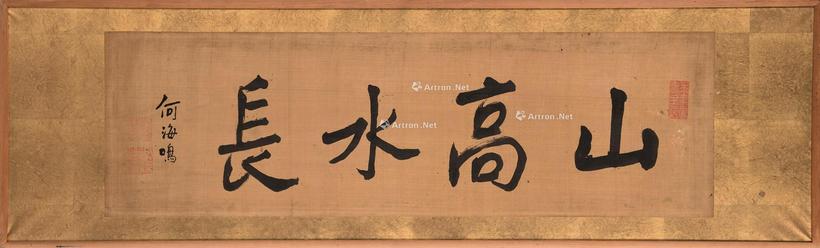 山高水長
何海鳴
Artron.Net
Artron.Net
Artron.Net